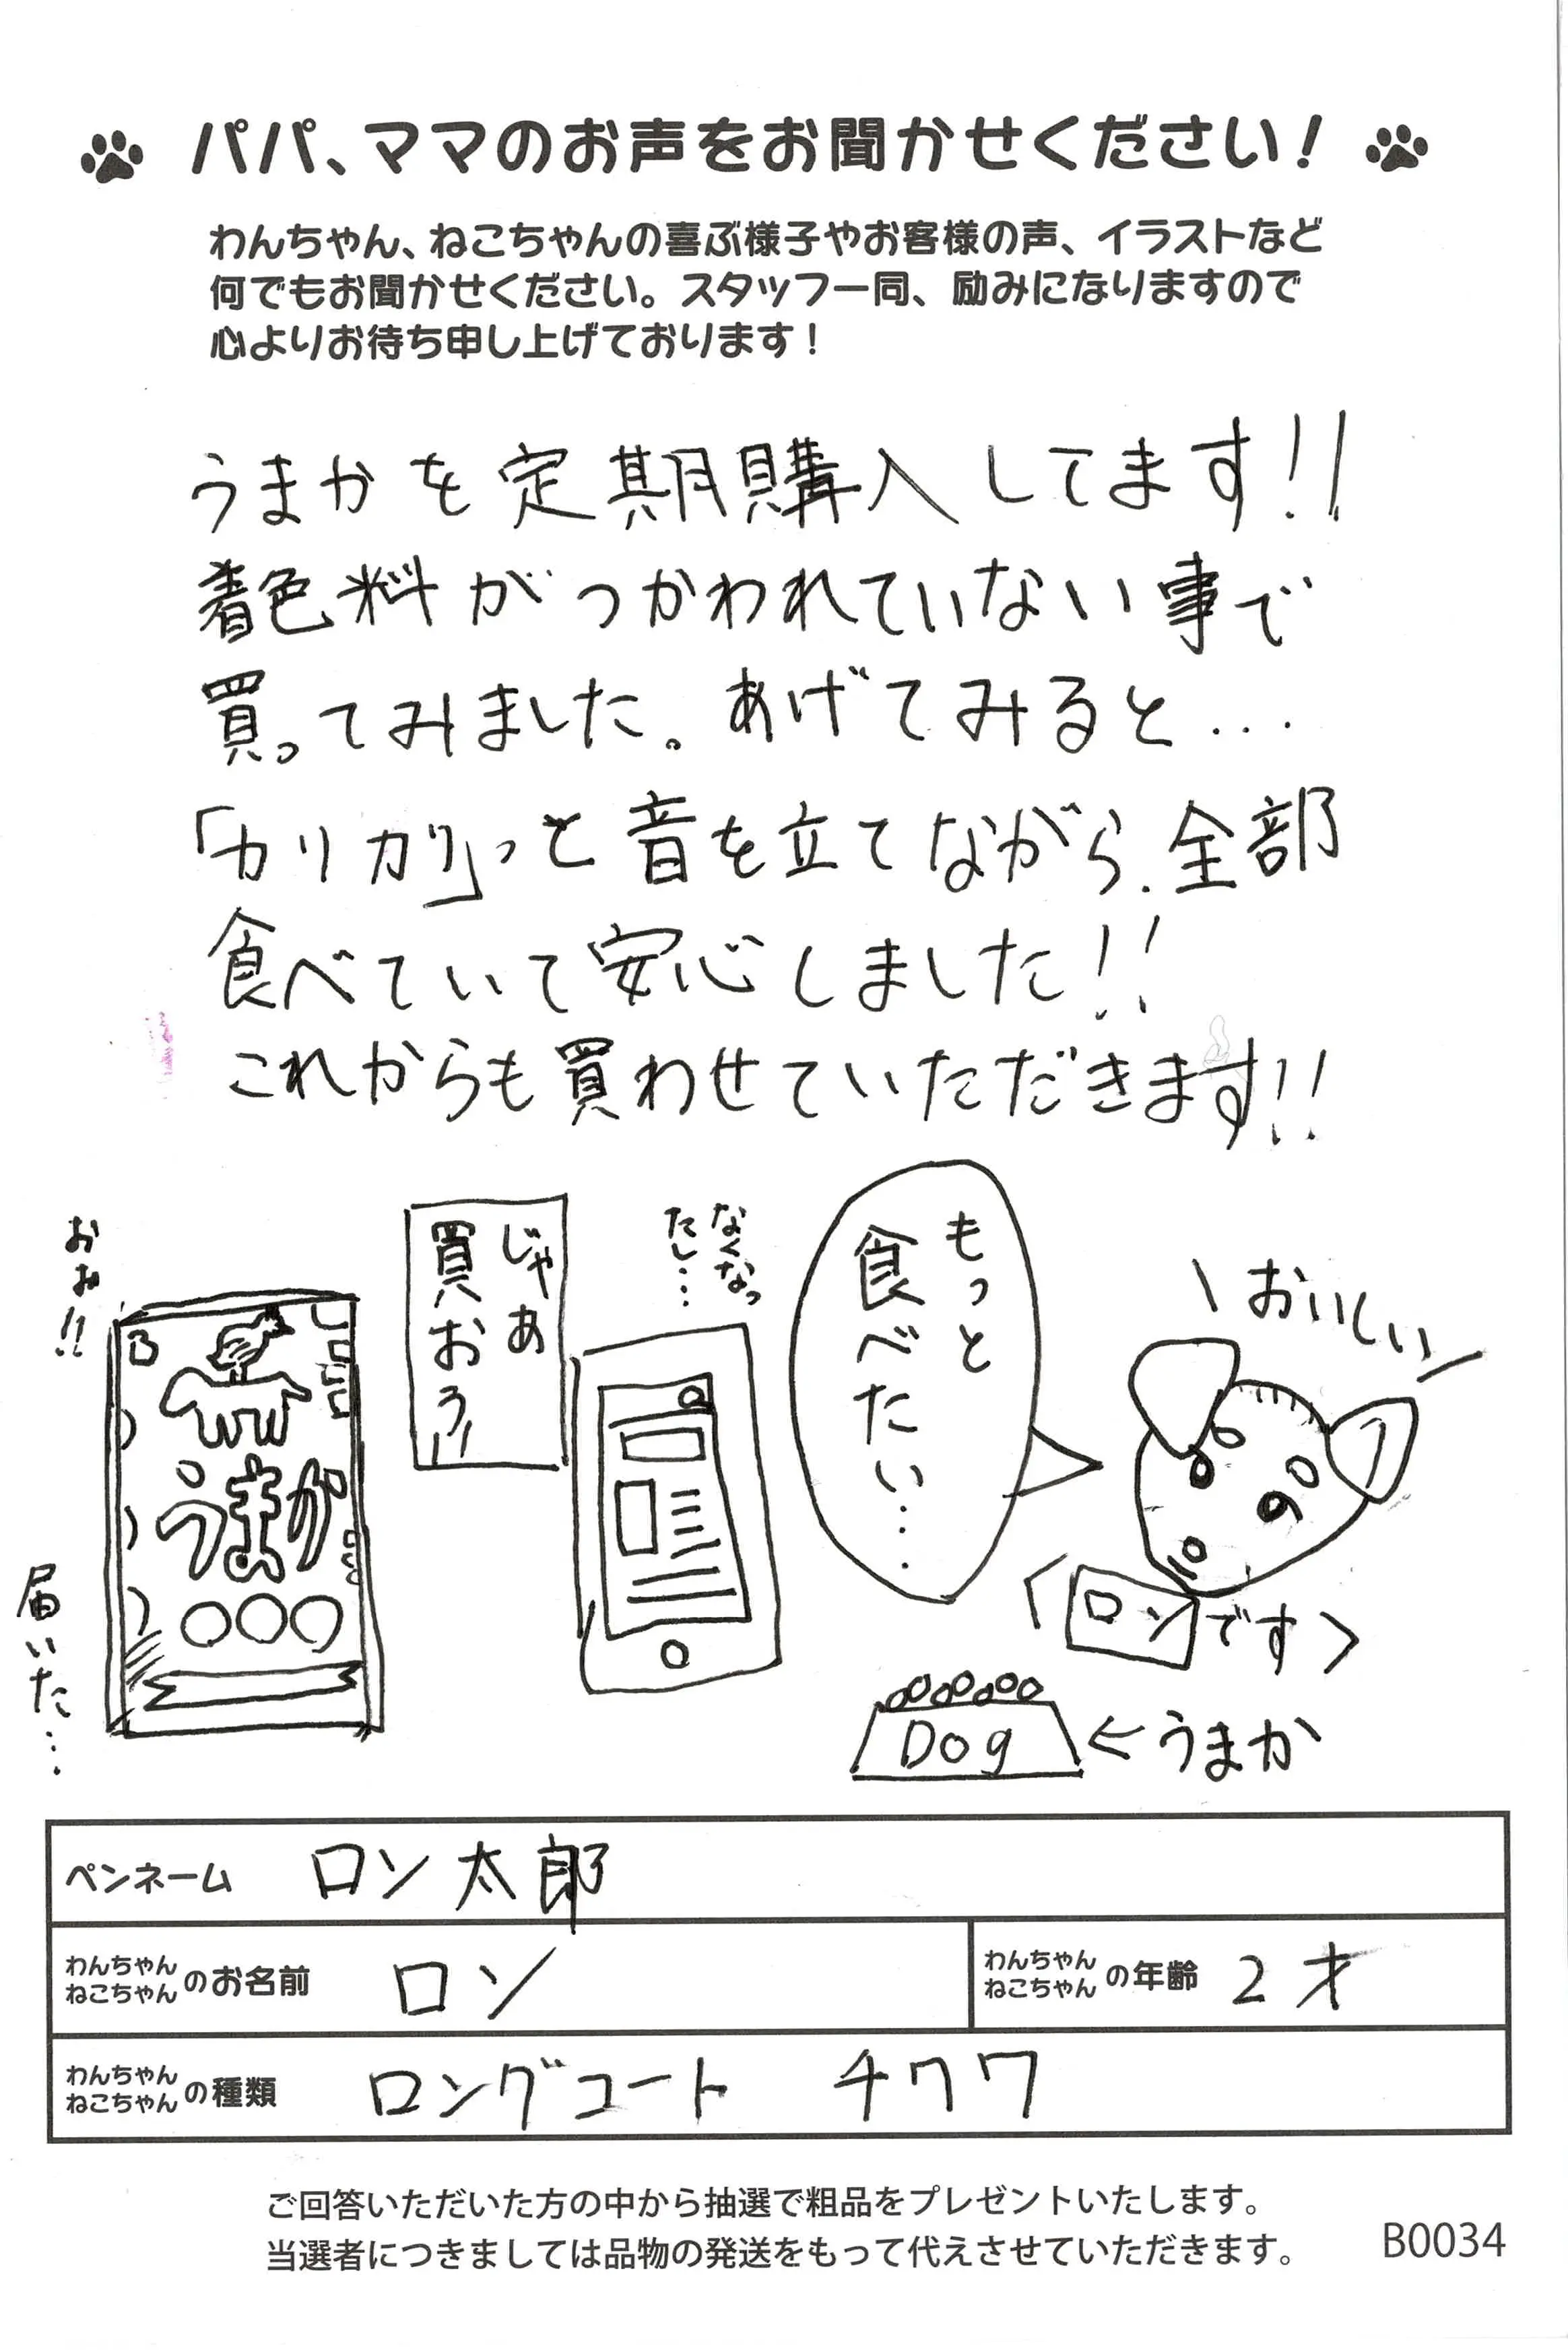 パパ、ママのお声をお聞かせください!
わんちゃん、ねこちゃんの喜ぶ様子やお客様の声、イラストなど
何でもお聞かせください。スタッフ一同、励みになりますので
心よりお待ち申し上げております!
うまかを定期購入してます!!
着色料がつかわれていない事で
買ってみました。あげてみると...
「カリカリ」っと音を立てながら、全部
食べていて安心しました!!
これからも買わせていただきます!!
\おいしい/
もっと
食べたい...
ロンです
Dog
←うまか
なくなっ
たし...
じゃあ
買おう!!
おお!!
うまか
届いた...
ペンネーム ロン太郎
わんちゃん
ねこちゃん
のお名前 ロン
わんちゃん
ねこちゃん
の年齢 2才
わんちゃん
ねこちゃん
の種類 ロングコート チワワ
ご回答いただいた方の中から抽選で粗品をプレゼントいたします。
当選者につきましては品物の発送をもって代えさせていただきます。
B0034